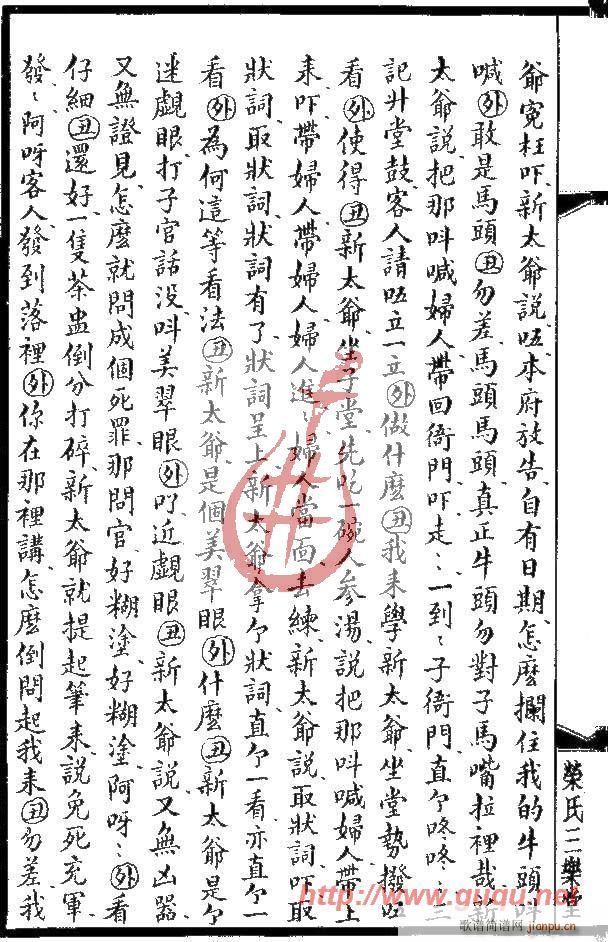 爺寃枉吓新太爺說𠳐本府放告自有日期怎麽攔住我的牛頭
喊外敢是馬頭丑勿差馬頭馬頭真正牛頭勿對子馬嘴拉裡哉新
太爺說把那呌喊婦人帶回衙門吓走〻一到〻子衙門直个咚咚
記升堂鼓客人請𠳐立一立外做什麽丑我來學新太爺坐堂勢撥𠳐
看外使得丑新太爺坐子堂先吃一碗人參湯說把那呌喊婦人帶上
來吓帶婦人帶婦人婦人進〻婦人當面去練新太爺說取狀詞吓取
狀詞取狀詞狀詞有了狀詞呈上新太爺拿个狀詞直个一看亦直个一
看外為何這等看法丑新太爺是個美翠眼外什麽丑新太爺是个
迷覷眼打子官話没呌美翠眼外吖近覷眼丑新太爺說又無凶器
又無證見怎麽就問成個死罪那問官好糊塗好糊塗阿呀〻外看
仔細丑還好一隻茶盅倒分打碎新太爺就提起筆來說免死充軍
發〻阿呀客人發到落裡外你在那裡講怎麽倒問起我來丑勿差我
榮氏三樂堂
http://www.ququ.net
歌谱简谱网
jianpu.cn